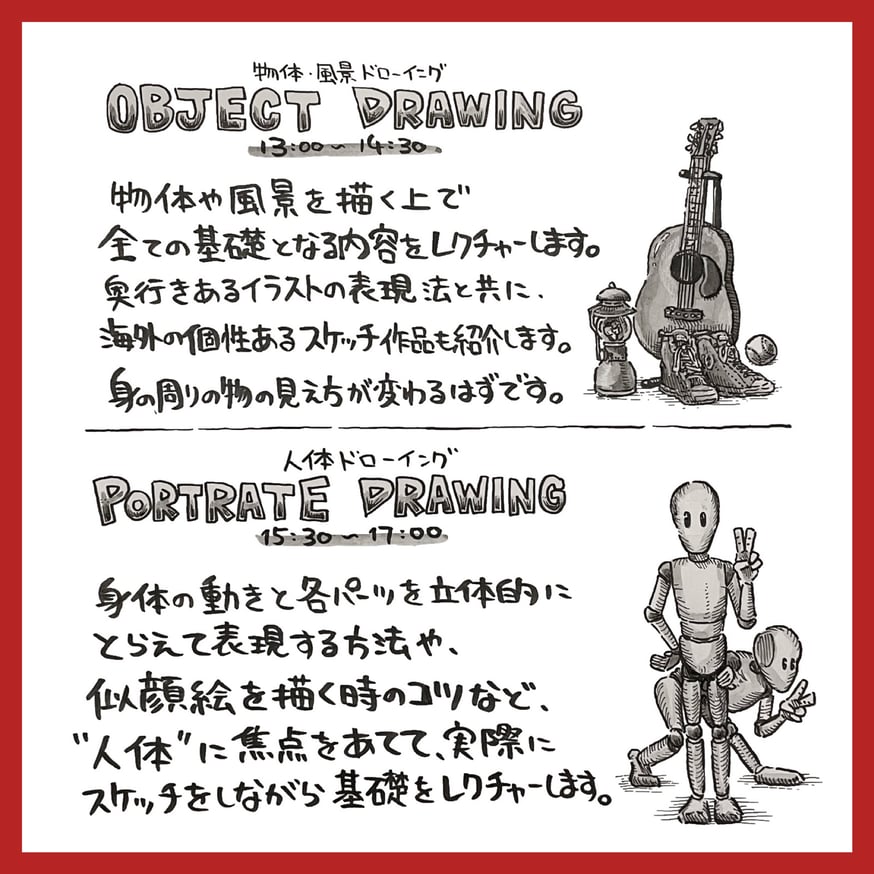 物体・風景ドローイング
OBJECT DRAWING
13:00〜14:30
物体や風景を描く上で
全ての基礎となる内容をレクチャーします。
奥行きあるイラストの表現法と共に、
海外の個性あるスケッチ作品も紹介します。
身の周りの物の見え方が変わるはずです。
人体ドローイング
PORTRATE DRAWING
15:30〜17:00
身体の動きと各パーツを立体的に
とらえて表現する方法や、
似顔絵を描く時のコツなど、
"人体"に焦点をあてて、実際に
スケッチをしながら基礎をレクチャーします。